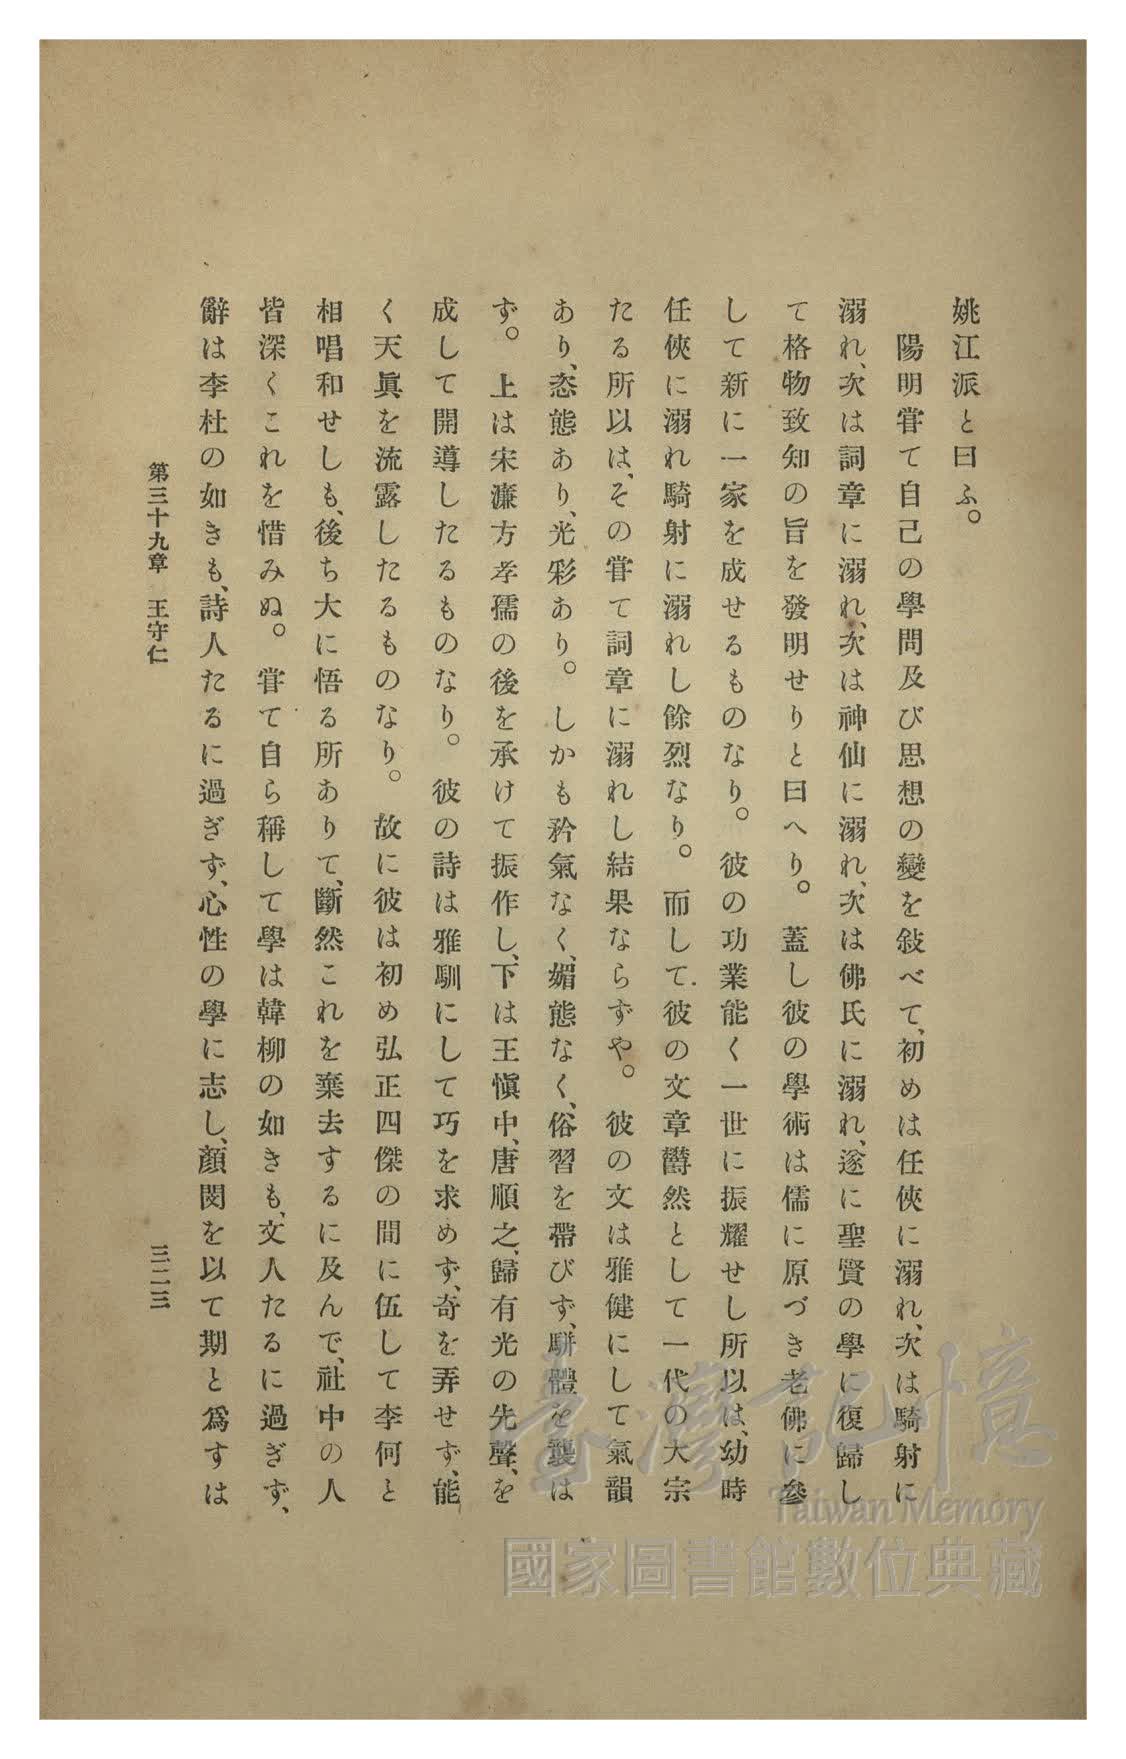 姚江派と曰ふ。
陽明甞て自己の學問及び思想の變を敍べて、初めは任俠に溺れ、次は騎射に
溺れ、次は詞章に溺れ、次は神仙に溺れ、次は佛氏に溺れ、遂に聖賢の學に復歸し
て格物致知の旨を發明せりと曰へり。蓋し彼の學術は儒に原づき老佛に參
して新に一家を成せるものなり。彼の功業能く一世に振耀せし所以は、幼時
任俠に溺れ騎射に溺れし餘烈なり。而して彼の文章欝然として一代の大宗
たる所以は、その甞て詞章に溺れし結果ならずや。彼の文は雅健にして氣韻
あり、恣態あり、光彩あり。しかも矜氣なく、媚態なく、俗習を帶びず、駢體を襲は
ず。上は宋濂方孝孺の後を承けて振作し、下は王愼中、唐順之、歸有光の先聲、を
成して開導したるものなり。彼の詩は雅馴にして巧を求めず、奇を弄せず、能
く天眞を流露したるものなり。故に彼は初め弘正四傑の間に伍して李何と
相唱和せしも、後ち大に悟る所ありて、斷然これを棄去するに及んで、社中の人
皆深くこれを惜みぬ。甞て自ら稱して學は韓柳の如きも、文人たるに過ぎず、
辭は李杜の如きも、詩人たるに過ぎず、心性の學に志し、顏閔を以て期と爲すは
第三十九章 王守仁
三二三
臺灣記憶
Taiwan Memory
國家圖書館數位典藏